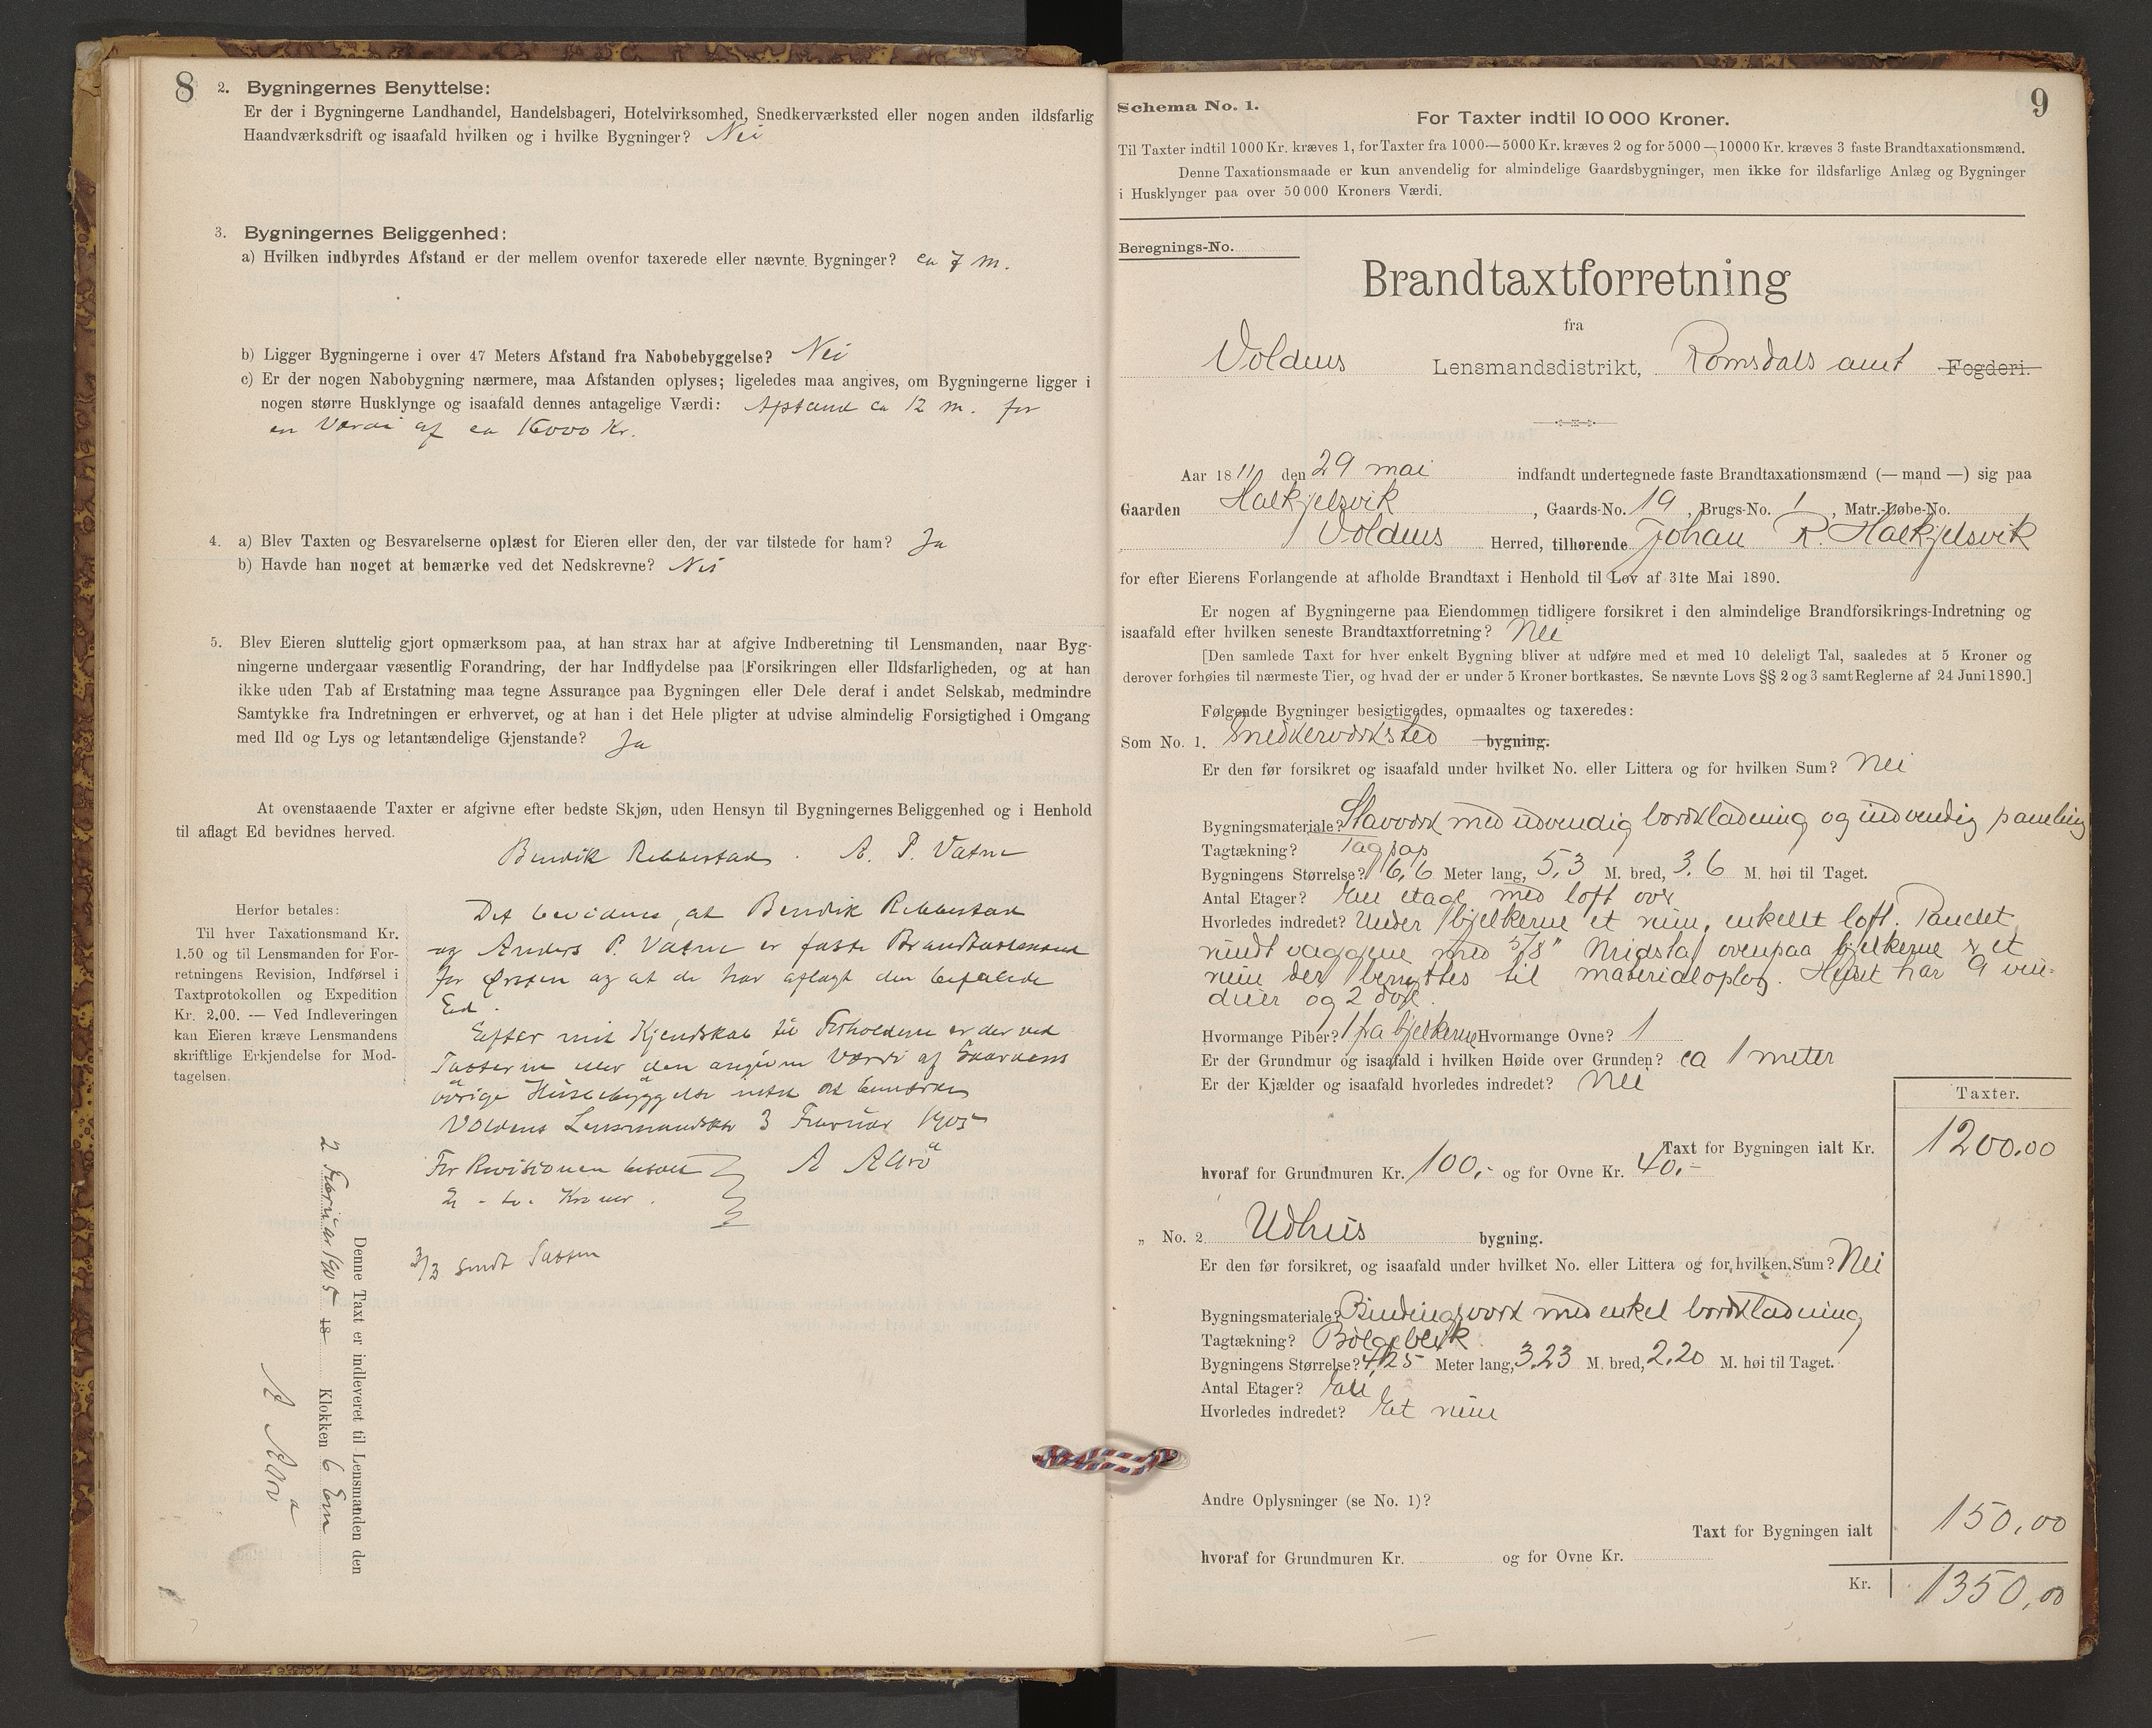 8
2. Bygningernes Benyttelse:
Er der i Bygningerne Landhandel, Handelsbageri, Hotelvirksomhed, Snedkerværksted eller nogen anden ildsfarlig
Haandværksdrift og isaafald hvilken og i hvilke Bygninger? Nei
3. Bygningernes Beliggenhed:
a) Hvilken indbyrdes Afstand er der mellem ovenfor taxerede eller nævnte Bygninger? ca 7 m.
b) Ligger Bygningerne i over 47 Meters Afstand fra Nabobebyggelse? Nei
c) Er der nogen Nabobygning nærmere, maa Afstanden oplyses; ligeledes maa angives, om Bygningerne ligger i
nogen større Husklynge og isaafald dennes antagelige Værdi: Afstand ca 12 m. for
en Værdi af ca 16000 Kr.
4. a) Blev Taxten og Besvarelserne oplæst for Eieren eller den, der var tilstede for ham? Ja
b) Havde han noget at bemærke ved det Nedskrevne? Nei
5. Blev Eieren sluttelig gjort opmærksom paa, at han strax har at afgive Indberetning til Lensmanden, naar Byg-
ningerne undergaar væsentlig Forandring, der har Indflydelse paa Forsikringen eller Ildsfarligheden, og at han
ikke uden Tab af Erstatning maa tegne Assurance paa Bygningen eller Dele deraf i andet Selskab, medmindre
Samtykke fra Indretningen er erhvervet, og at han i det Hele pligter at udvise almindelig Forsigtighed i Omgang
med Ild og Lys og letantændelige Gjenstande? Ja
At ovenstaaende Taxter er afgivne efter bedste Skjøn, uden Hensyn til Bygningernes Beliggenhed og i Henhold
til aflagt Ed bevidnes herved.
Bendik Rebbestad. A. P. Vatne
Herfor betales:
Til hver Taxationsmand Kr.
1.50 og til Lensmanden for For-
retningens Revision, Indførsel i
Taxtprotokollen og Expedition
Kr. 2.00. — Ved Indleveringen
kan Eieren kræve Lensmandens
skriftlige Erkjendelse for Mod-
tagelsen.
Det bevidnes, at Bendik Rebbestad
og Anders P. Vatne er faste Brandtaxtmænd
for Ørsten og at de har aflagt den befalede
Ed.
Efter mit Kjendskab til Forholdene er der ved
Taxterne eller den angivne Værdi af Gaardens
øvrige Husebyggelse intet at bemærke
Voldens Lensmandsktr 3 Februar 1905
For Revisionen betalt A Aarø
2 - to - Kroner.
3/3 sendt Taxten
Denne Taxt er indleveret til Lensmanden den
2 Februar 1905 18 Klokken 6 Em
A Aarø
9
Schema No. 1.
For Taxter indtil 10 000 Kroner.
Til Taxter indtil 1000 Kr. kræves 1, for Taxter fra 1000—5000 Kr. kræves 2 og for 5000—10000 Kr. kræves 3 faste Brandtaxationsmænd.
Denne Taxationsmaade er kun anvendelig for almindelige Gaardsbygninger, men ikke for ildsfarlige Anlæg og Bygninger
i Husklynger paa over 50 000 Kroners Værdi.
Beregnings-No.
Brandtaxtforretning
fra
Voldens Lensmandsdistrikt, Romsdals amt Fogderi.
Aar 1811 den 29 mai indfandt undertegnede faste Brandtaxationsmænd (— mand —) sig paa
Gaarden Halkjelsvik, Gaards-No. 19, Brugs-No. 1, Matr.-Løbe-No.
Voldens Herred, tilhørende Johan R. Halkjelsvik
for efter Eierens Forlangende at afholde Brandtaxt i Henhold til Lov af 31te Mai 1890.
Er nogen af Bygningerne paa Eiendommen tidligere forsikret i den almindelige Brandforsikrings-Indretning og
isaafald efter hvilken seneste Brandtaxtforretning? Nei
[Den samlede Taxt for hver enkelt Bygning bliver at udføre med et med 10 deleligt Tal, saaledes at 5 Kroner og
derover forhøies til nærmeste Tier, og hvad der er under 5 Kroner bortkastes. Se nævnte Lovs §§ 2 og 3 samt Reglerne af 24 Juni 1890.]
Følgende Bygninger besigtigedes, opmaaltes og taxeredes:
Som No. 1. Snedkerværksted bygning.
Er den før forsikret og isaafald under hvilket No. eller Littera og for hvilken Sum? Nei
Bygningsmateriale? Stavværk med udvendig bordklædning og indvendig paneling
Tagtækning? Tagpap
Bygningens Størrelse? 6,6 Meter lang, 5,3 M. bred, 3,6 M. høi til Taget.
Antal Etager? En etage med loft over
Hvorledes indredet? Under bjelkerne et rum, enkelt loft. Panelet
rundt væggene med 5/8" ovenpaa bjelkerne er et
rum der benyttes til materialoplag. Huset har 9 vin-
duer og 2 døre.
Hvormange Piber? 1 fra bjelkerne Hvormange Ovne? 1
Er der Grundmur og isaafald i hvilken Høide over Grunden? ca 1 meter
Er der Kjælder og isaafald hvorledes indredet? Nei
Taxter.
Taxt for Bygningen ialt Kr. 1200.00
hvoraf for Grundmuren Kr. 100,- og for Ovne Kr. 40.-
„ No. 2 Udhus bygning.
Er den før forsikret, og isaafald under hvilket No. eller Littera og for hvilken Sum? Nei
Bygningsmateriale? Bindingsværk med enkel bordklædning
Tagtækning? Bølgeblik
Bygningens Størrelse? 4,25 Meter lang, 3,23 M. bred, 2,20 M. høi til Taget.
Antal Etager? En
Hvorledes indredet? Et rum
Andre Oplysninger (se No. 1)?
Taxt for Bygningen ialt 150,00
hvoraf for Grundmuren Kr. og for Ovne Kr.
Kr. 1350,00